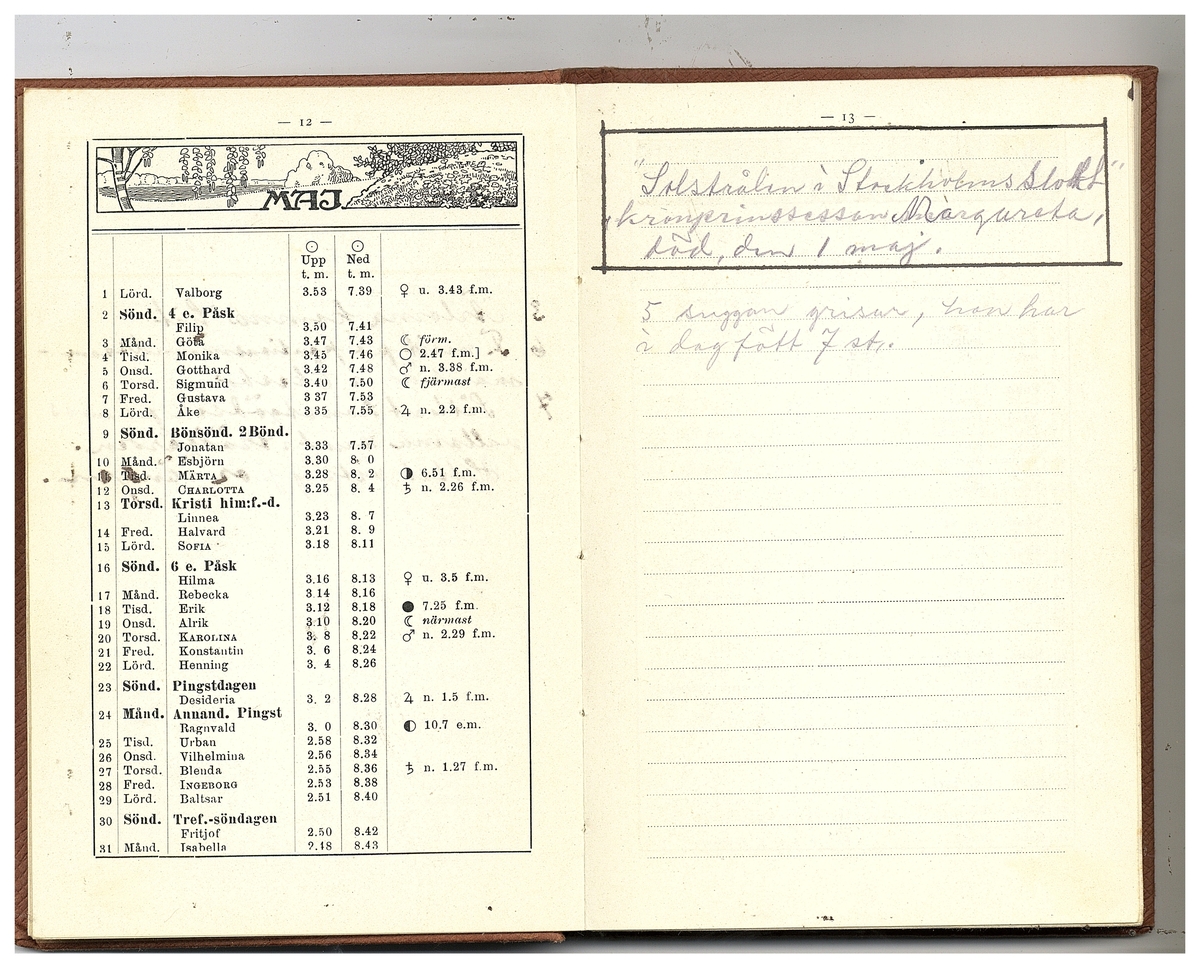 — 12 —
MAJ
Upp Ned
t. m. t. m.
1 Lörd. Valborg 3.53 7.39 ♀ u. 3.43 f.m.
2 Sönd. 4 e. Påsk
Filip 3.50 7.41
3 Månd. Göta 3.47 7.43 ☾ förm.
4 Tisd. Monika 3.45 7.46 ○ 2.47 f.m.]
5 Onsd. Gotthard 3.42 7.48 ♂ n. 3.38 f.m.
6 Torsd. Sigmund 3.40 7.50 ☾ fjärmast
7 Fred. Gustava 3 37 7.53
8 Lörd. Åke 3 35 7.55 ♃ n. 2.2 f.m.
9 Sönd. Bönsönd. 2 Bönd.
Jonatan 3.33 7.57
10 Månd. Esbjörn 3.30 8. 0
11 Tisd. MÄRTA 3.28 8. 2 ◑ 6.51 f.m.
12 Onsd. CHARLOTTA 3.25 8. 4 ♄ n. 2.26 f.m.
13 Torsd. Kristi him:f.-d.
Linnea 3.23 8. 7
14 Fred. Halvard 3.21 8. 9
15 Lörd. SOFIA 3.18 8.11
16 Sönd. 6 e. Påsk
Hilma 3.16 8.13 ♀ u. 3.5 f.m.
17 Månd. Rebecka 3 14 8.16
18 Tisd. Erik 3.12 8.18 ● 7.25 f.m.
19 Onsd. Alrik 3.10 8.20 ☾ närmast
20 Torsd. KAROLINA 3. 8 8.22 ♂ n. 2.29 f.m.
21 Fred. Konstantin 3. 6 8.24
22 Lörd. Henning 3. 4 8.26
23 Sönd. Pingstdagen
Desideria 3. 2 8.28 ♃ n. 1.5 f.m.
24 Månd. Annand. Pingst
Ragnvald 3. 0 8.30 ◐ 10.7 e.m.
25 Tisd. Urban 2.58 8.32
26 Onsd. Vilhelmina 2.56 8.34
27 Torsd. Blenda 2.55 8.36 ♄ n. 1.27 f.m.
28 Fred. INGEBORG 2.53 8.38
29 Lörd. Baltsar 2.51 8.40
30 Sönd. Tref.-söndagen
Fritjof 2.50 8.42
31 Månd. Isabella 2.48 8.43
— 13 —
"Solstrålen i Stockholms Slott"
kronprinssessan Margareta,
död, den 1 maj.
5 suggan grisar, hon har
i dag fött 7 st.